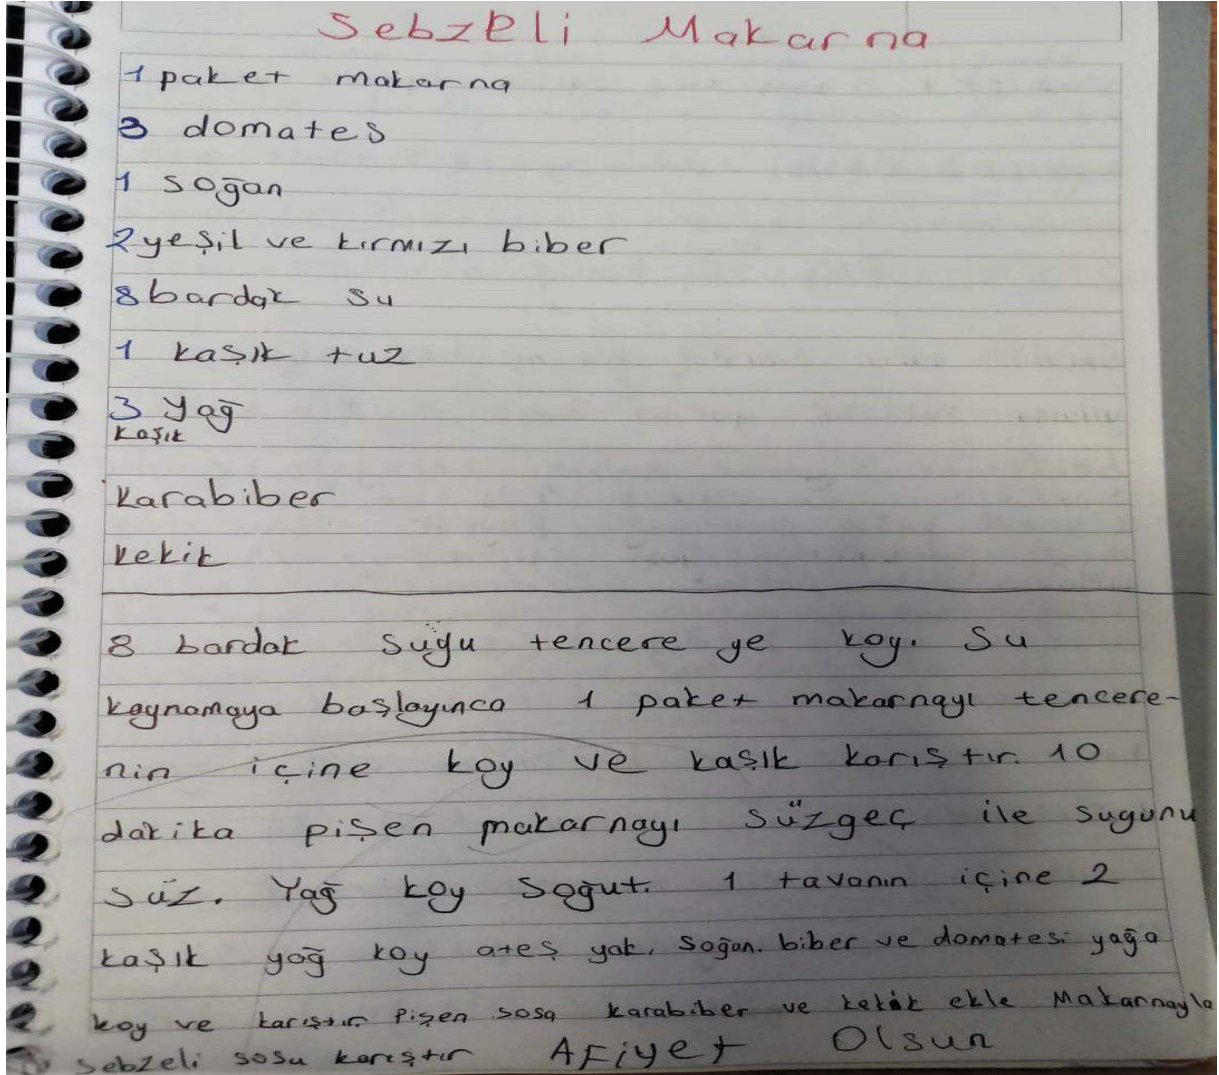 Sebzeli Makarna
1 paket makarna
3 domates
1 soğan
2 yeşil ve kırmızı biber
8 bardak su
1 kaşık tuz
3 yağ
kaşık
karabiber
kekik
8 bardak suyu tencere ye koy. Su
kaynamaya başlayınca 1 paket makarnayı tencere-
nin içine koy ve kaşık karıştır. 10
dakika pişen makarnayı süzgeç ile suyunu
süz. Yağ koy soğut. 1 tavanın içine 2
kaşık yağ koy ateş yak. Soğan. biber ve domatesi yağa
koy ve karıştır Pişen sosa karabiber ve kekik ekle Makarnayla
sebzeli sosu karıştır AFiyet Olsun